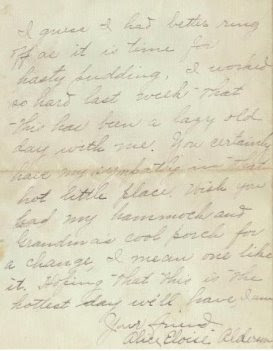 I guess I had better ring
off as it is time for
hasty pudding. I worked
so hard last week that
this has been a lazy old
day with me. You certainly
have my sympathy in that
hot little place. Wish you
had my hammock and
Grandma's cool porch for
a change, I mean one like
it. Hoping that this is the
hottest day we'll have, I am
Your friend,
Alice Eloise Alderman